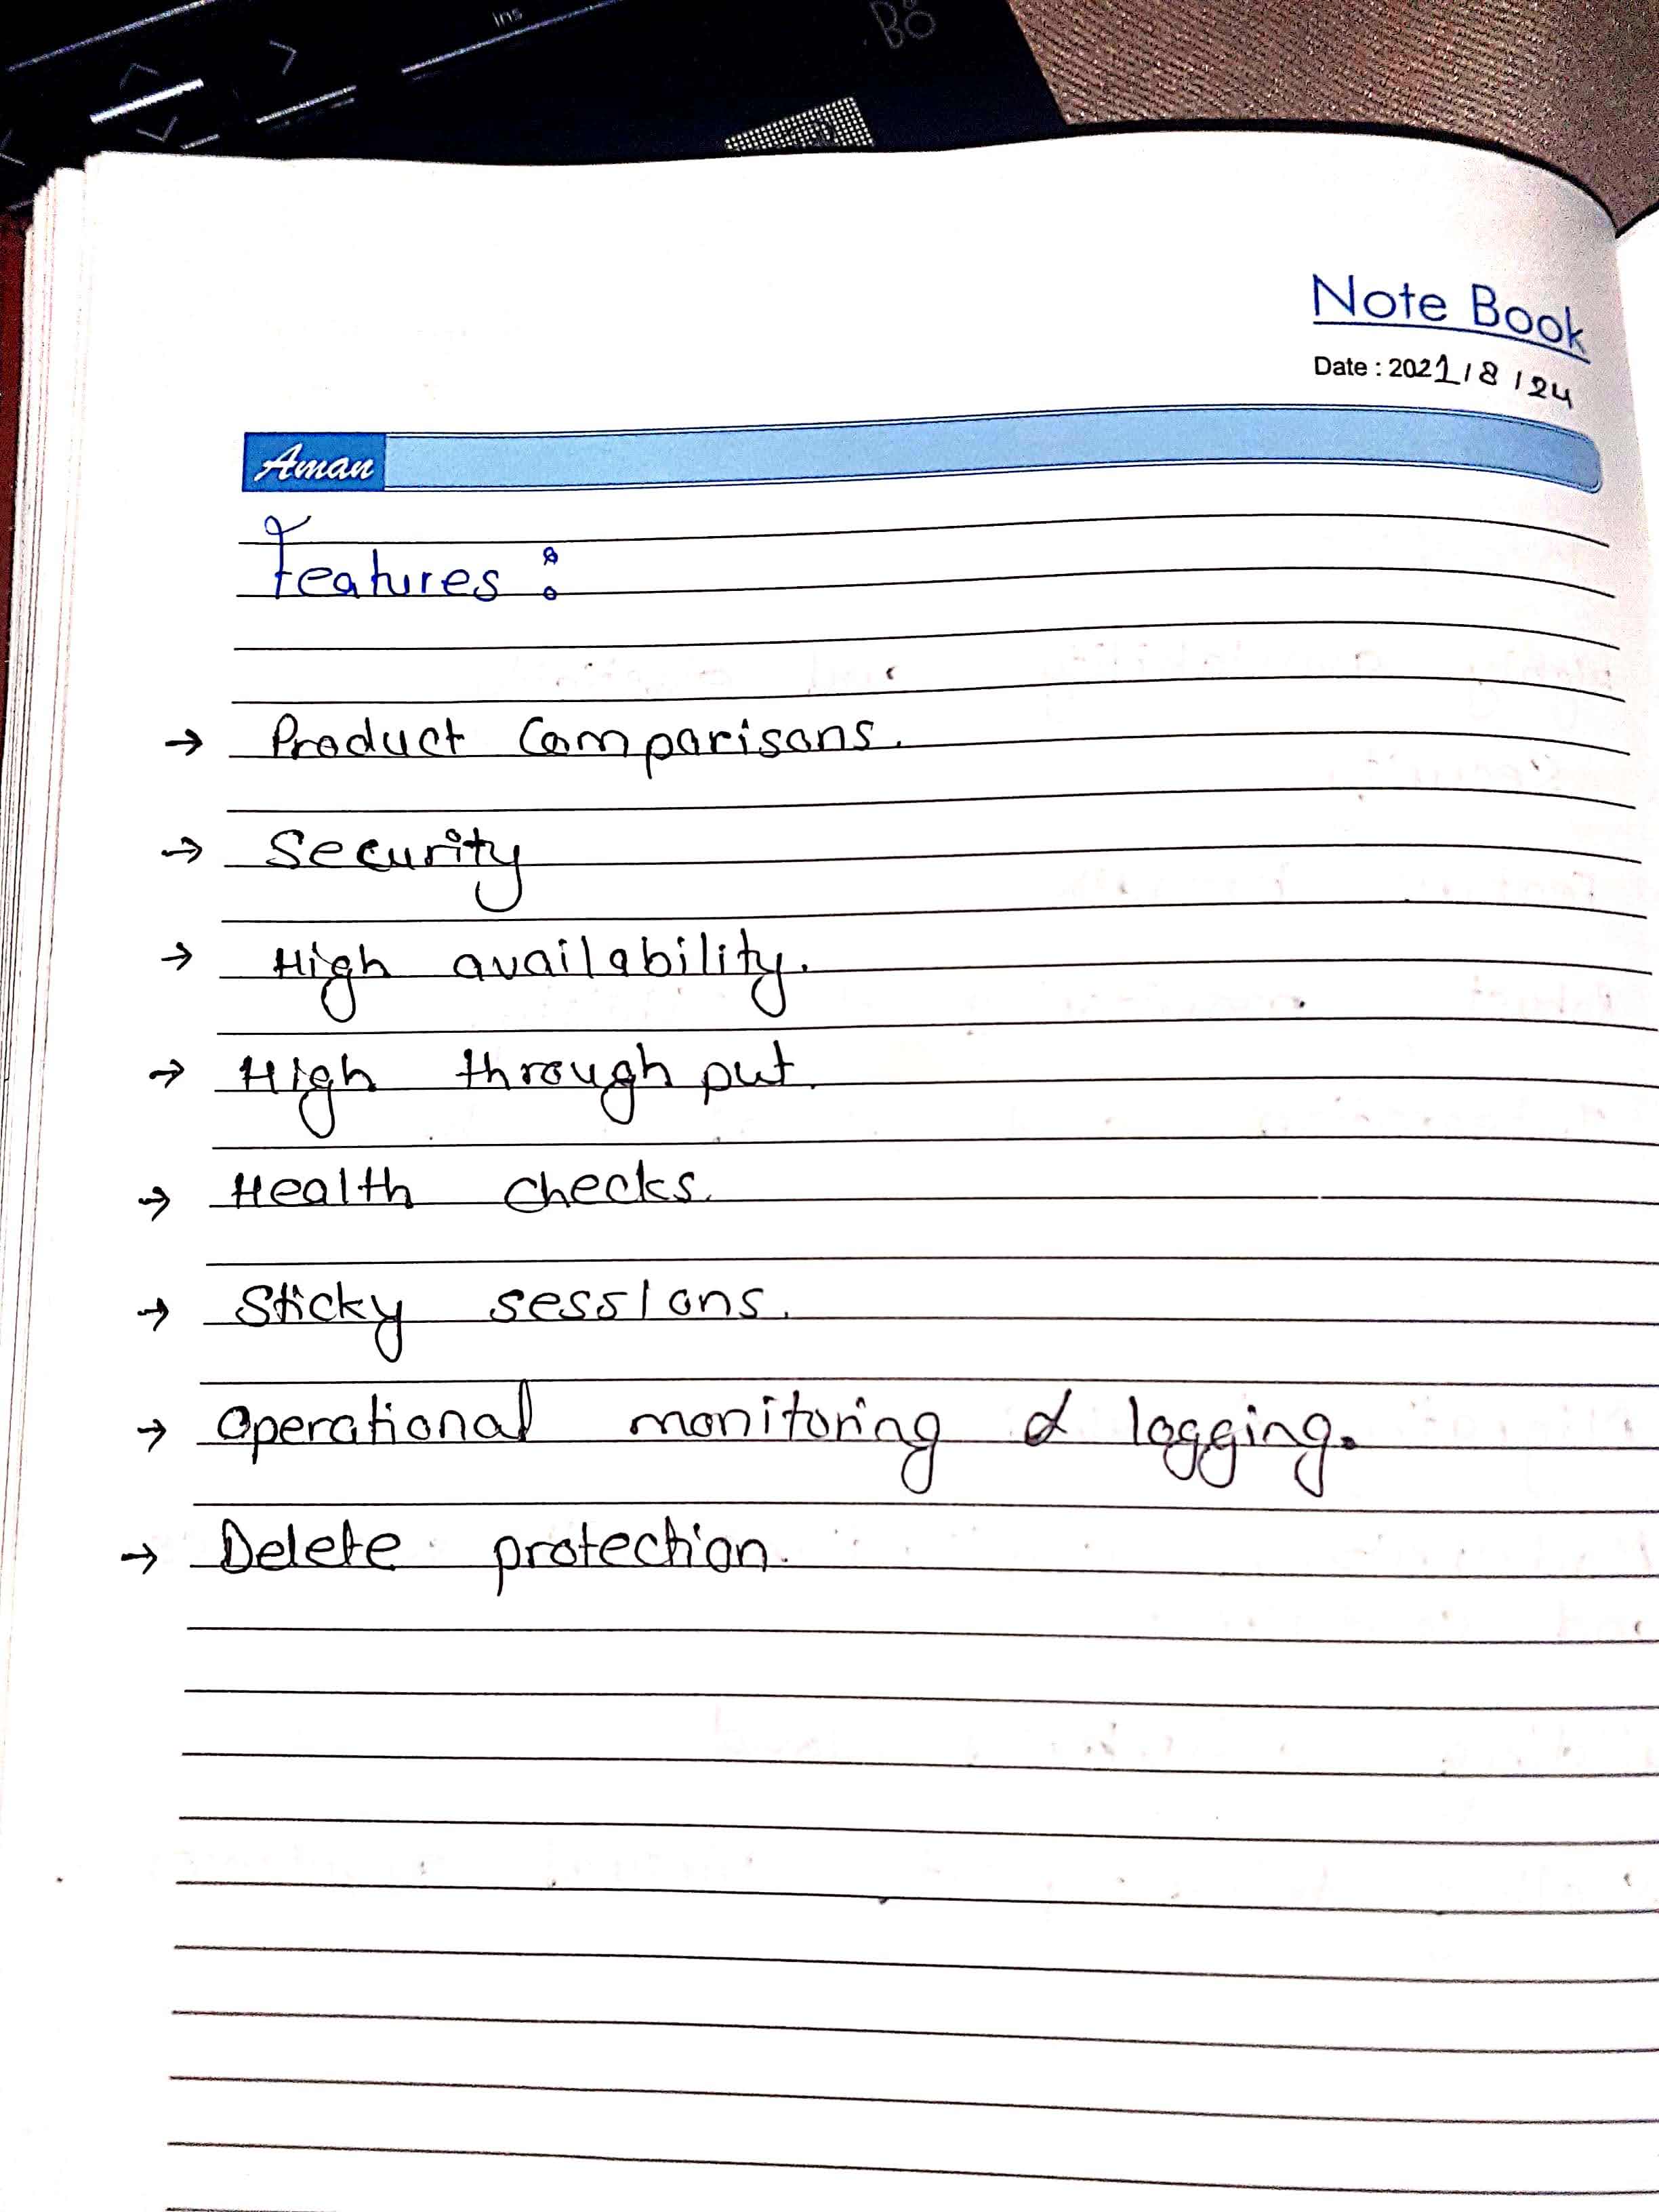 ins
Note Book
Date : 2021/8/24
Aman
Features :
→ Product Comparisons.
→ Security
→ High availability.
→ High through put.
→ Health checks.
→ Sticky sessions.
→ Operational monitoring & logging.
→ Delete protection.